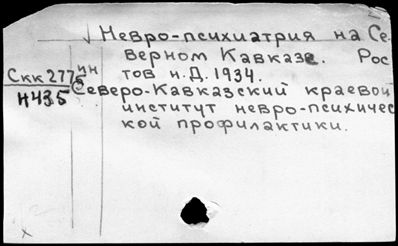 Невро-психиатрия на Се
верном Кавказе. Рос
тов н.Д. 1934.
Скк 277 ин
Н435
Северо-Кавказский краевой
институт невро-психичес
кой профилактики.